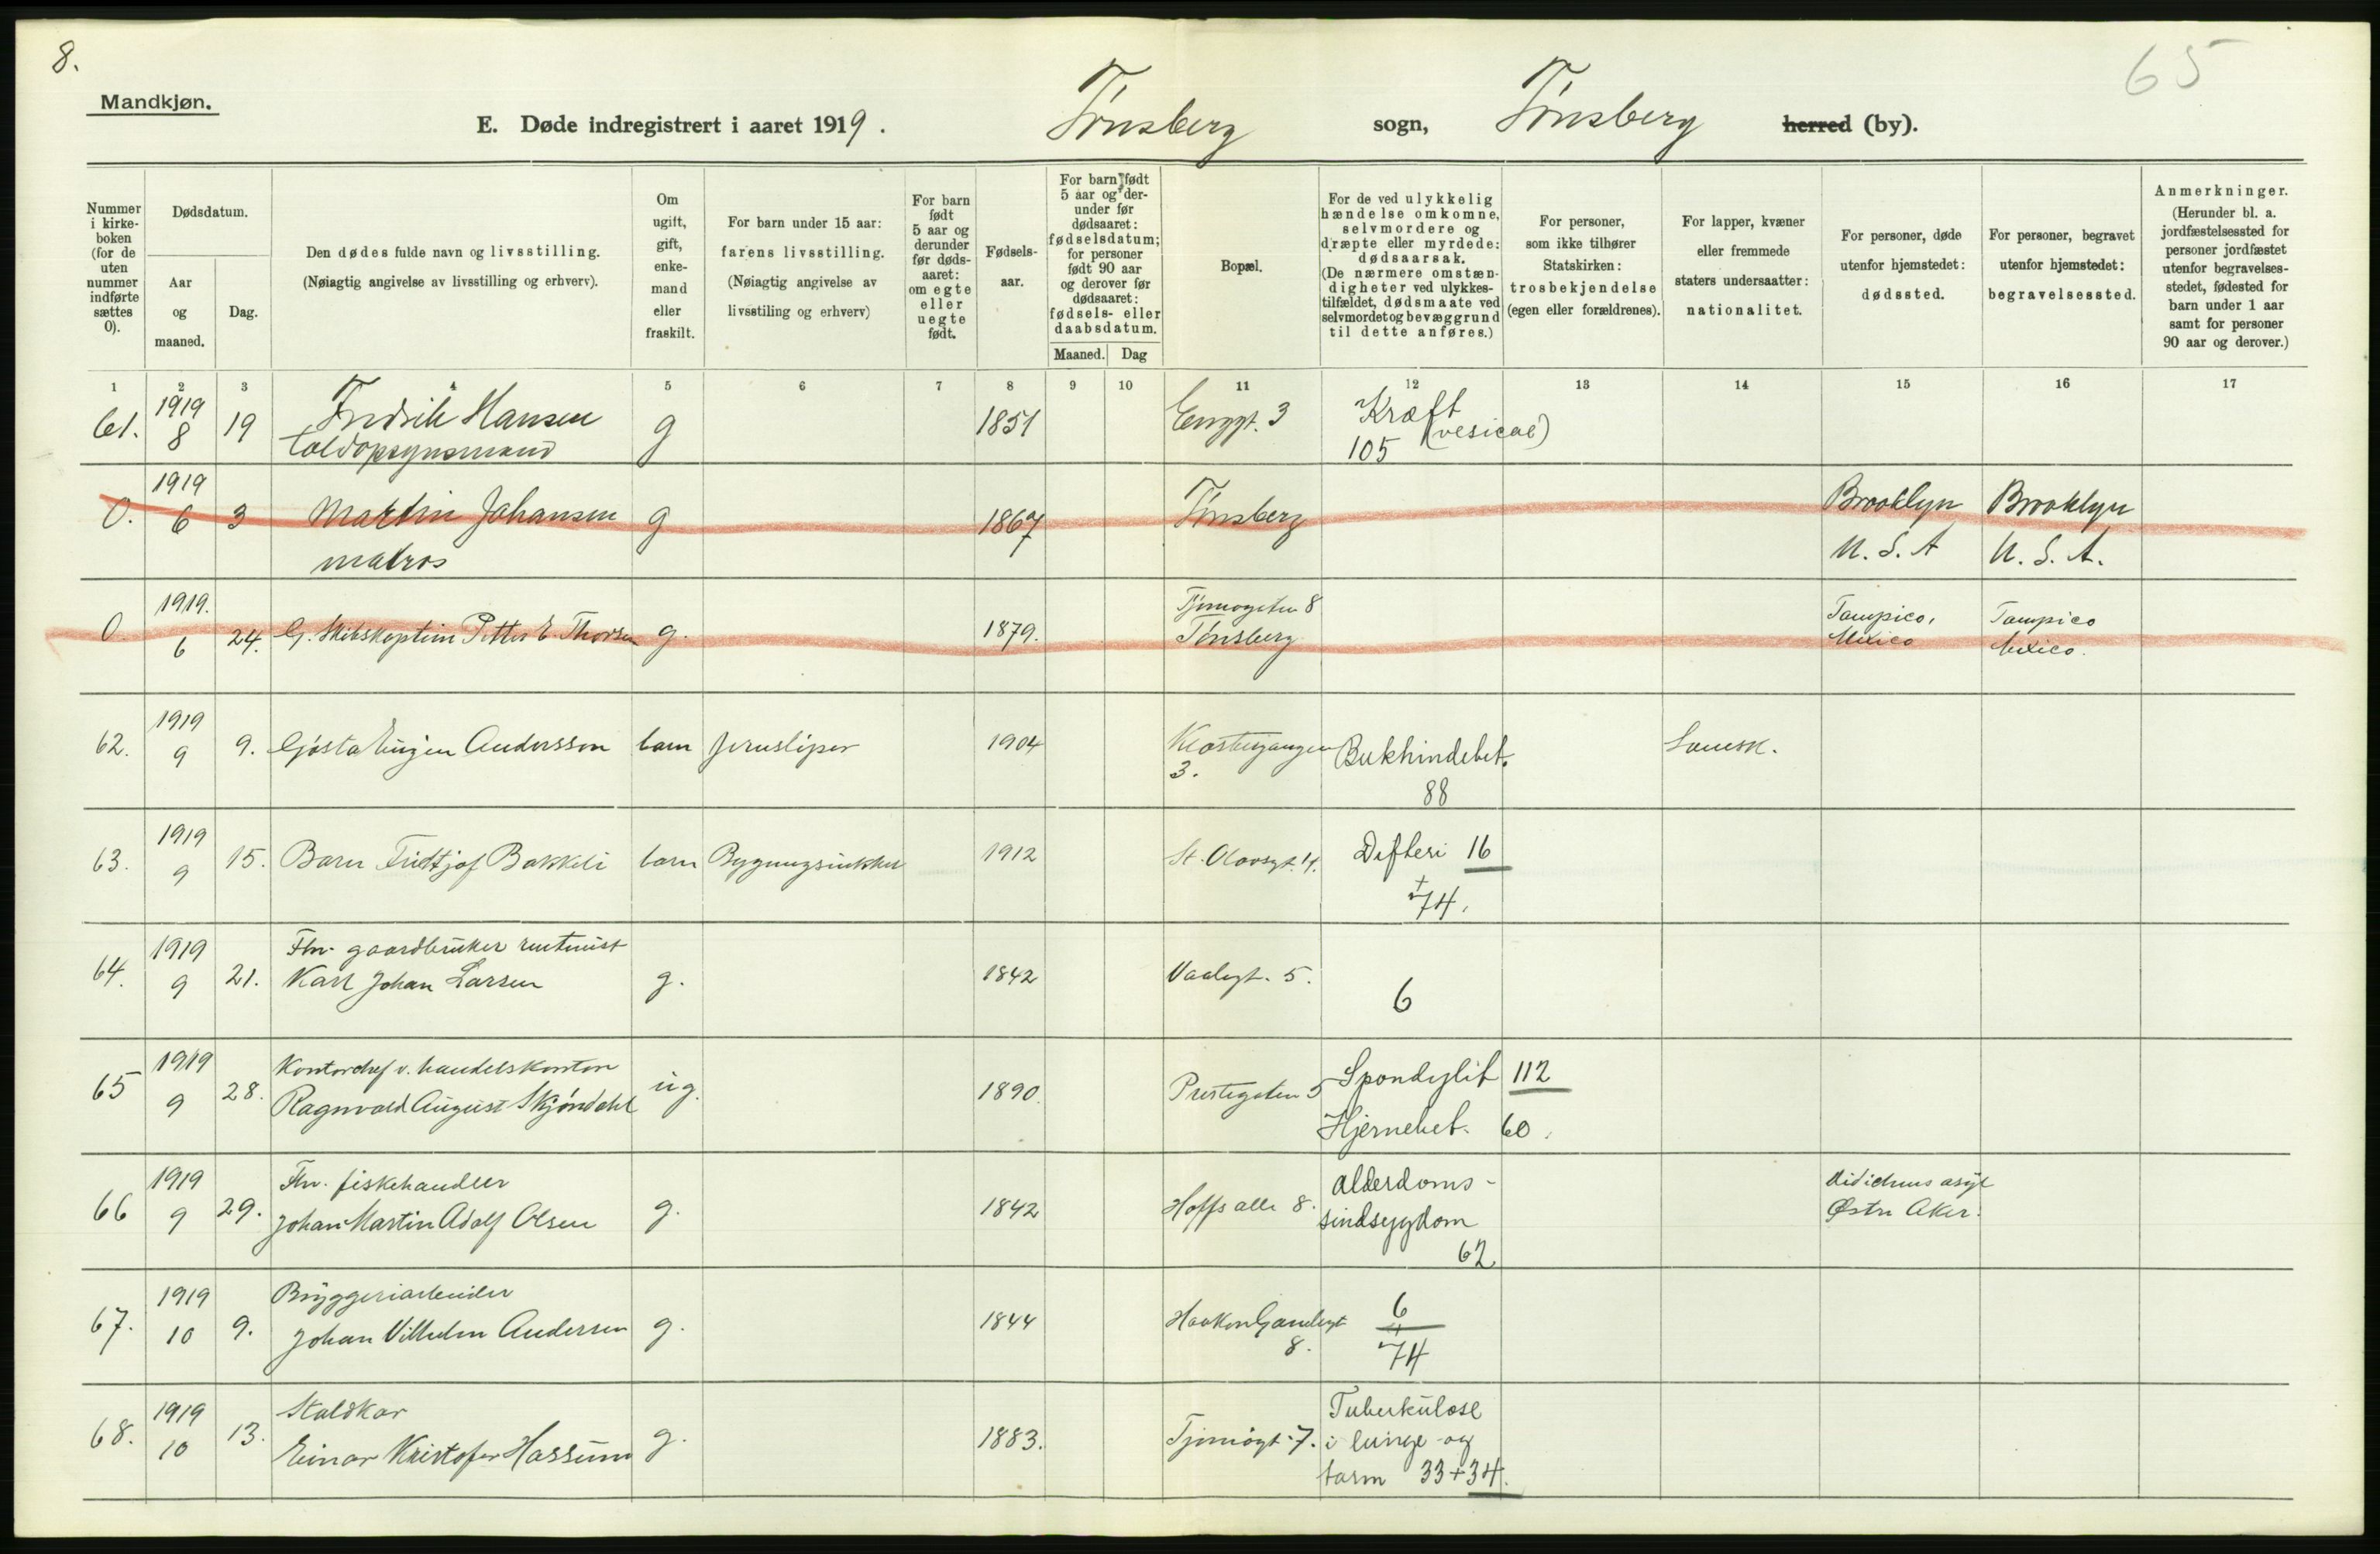 8.
65
Mandkjøn.
E. Døde indregistrert i aaret 1919.
Tønsberg sogn, Tønsberg herred (by).
Nummer i kirkeboken (for de uten nummer indførte sættes 0).
Dødsdatum.
Aar og maaned.
Dag.
Den dødes fulde navn og livsstilling. (Nøiagtig angivelse av livsstilling og erhverv).
Om ugift, gift, enkemand eller fraskilt.
For barn under 15 aar: farens livsstilling. (Nøiagtig angivelse av livsstiling og erhverv)
For barn født 5 aar og derunder før dødsaaret: om egte eller uegte født.
Fødselsaar.
For barn født 5 aar og derunder før dødsaaret: fødselsdatum; for personer født 90 aar og derover før dødsaaret: fødsels- eller daabsdatum.
Maaned. Dag
Bopæl.
For de ved ulykkelig hændelse omkomne, selvmordere og dræpte eller myrdede: dødsaarsak. (De nærmere omstændigheter ved ulykkestilfældet, dødsmaate ved selvmordet og bevæggrund til dette anføres.)
For personer, som ikke tilhører Statskirken: trosbekjendelse (egen eller forældrenes).
For lapper, kvæner eller fremmede staters undersaatter: nationalitet.
For personer, døde utenfor hjemstedet: dødssted.
For personer, begravet utenfor hjemstedet: begravelsessted.
Anmerkninger. (Herunder bl. a. jordfæstelsessted for personer jordfæstet utenfor begravelsesstedet, fødested for barn under 1 aar samt for personer 90 aar og derover.)
1 2 3 4 5 6 7 8 9 10 11 12 13 14 15 16 17
61. 1919 8 19 Fredrik Hansen g 1851 Enggt. 3 Kræft (vesicae)
toldopsynsmand 105
0. 1919 6 3 Martin Johansen g 1867 Tønsberg Brooklyn Brooklyn
matros U. S. A U. S. A.
0 1919. 6 24. G. Skibskaptein Petter E. Thorsen g. 1879. Tjømøgaten 8 Tampico, Tampico
Tønsberg Mexico Mexico.
62. 1919 9 9. Gösta Eugen Andersson barn jernsliper 1904 Klostergangen 3. Bukhindebet. Svensk.
88
63. 1919 9 15. Barn Fridtjof Bakkeli barn Bygningssnikker 1912 St. Olavsgt. 4. Difteri 16
+ 74.
64. 1919 9 21. Fhv. gaardbruker rentenist
Karl Johan Larsen g. 1842 5. 6
65 1919 9 28. Kontorchef v. handelskontor
Ragnvald August Skjøndahl ug. 1890. Prestegaten 5 Spondylit 112
Hjernebet. 60.
66 1919 9 29. Fhv. fiskehandler
Johan Martin Adolf Olsen g. 1842 Hoffs alle 8. Alderdomssindsygdom asyl
62. Østre Aker.
67. 1919 10 9. Bryggeriarbeider
Johan Vilhelm Andersen g. 1844 Haakon Gamlesgt 8. 6
+ 74
68. 1919 10 13. Staldkar
Einar Kristofer Hassum g. 1883. Tjømøgt. 7. Tuberkulose
i lunge og
tarm 33+34.